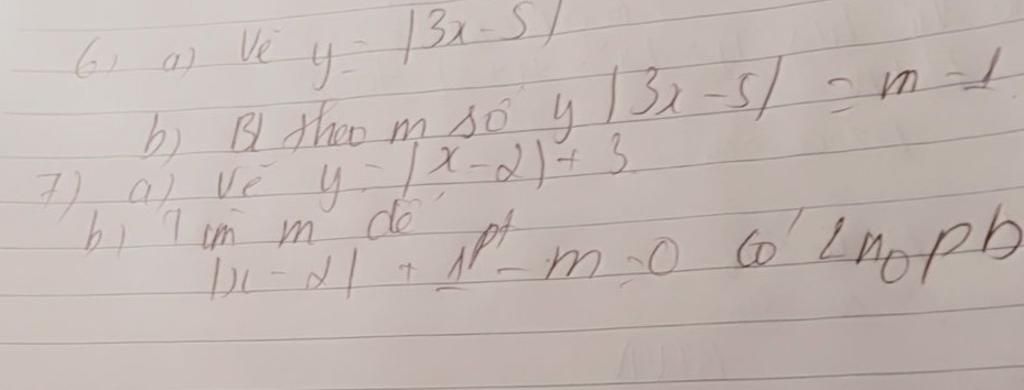 6) a) Vẽ y = |3x - 5|
b) BL theo m số y |3x - 5| = m - 1
7) a) Vẽ y = |x - 2| + 3
b) Tìm m để pt
|x - 2| + 1 - m = 0 có 2 no pb